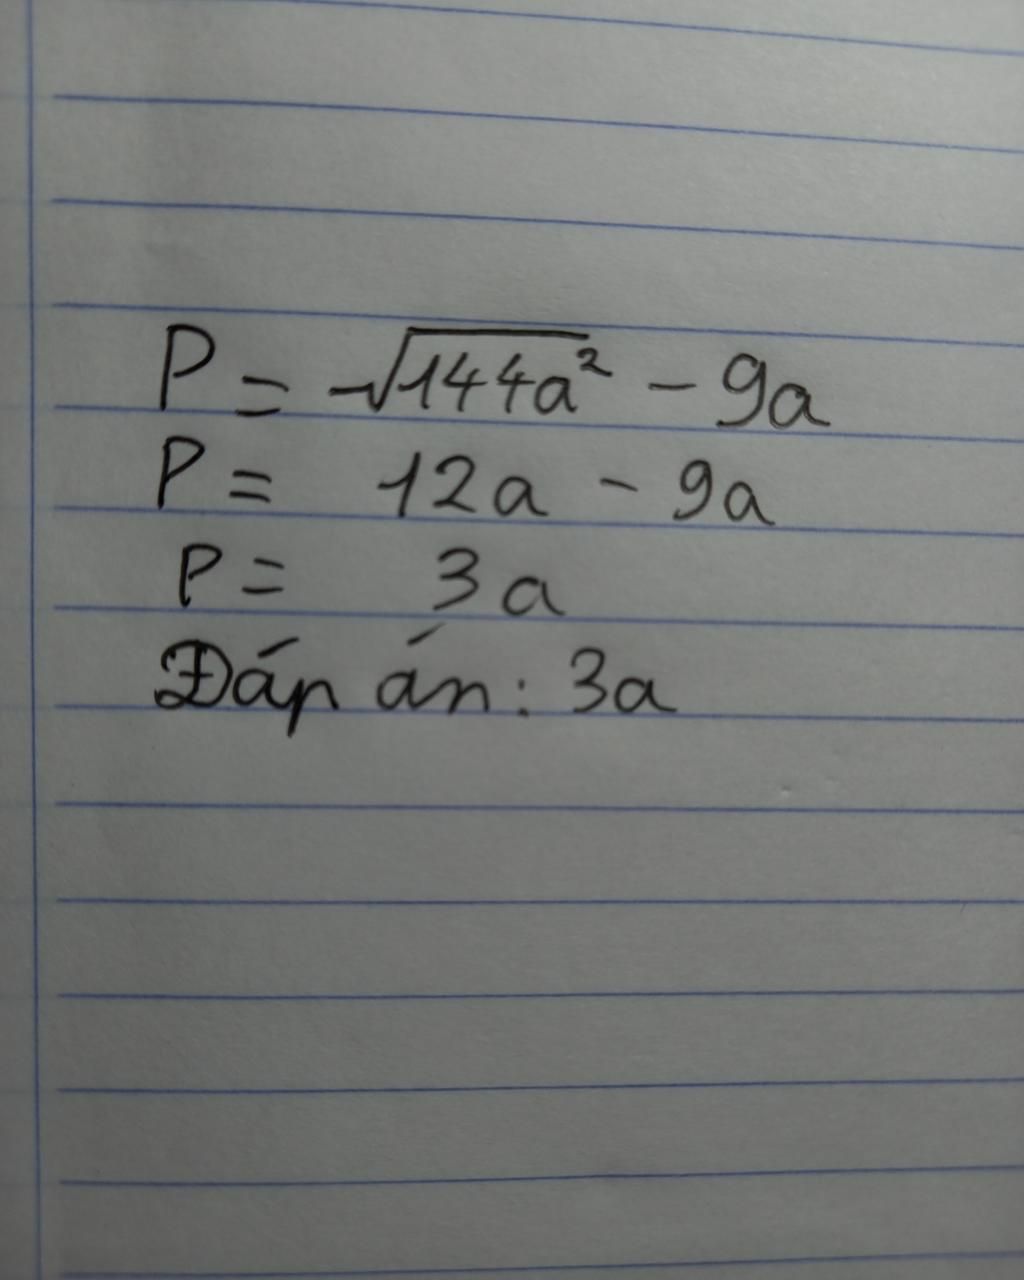 P = √144a² - 9a
P = 12a - 9a
P = 3a
Đáp án: 3a